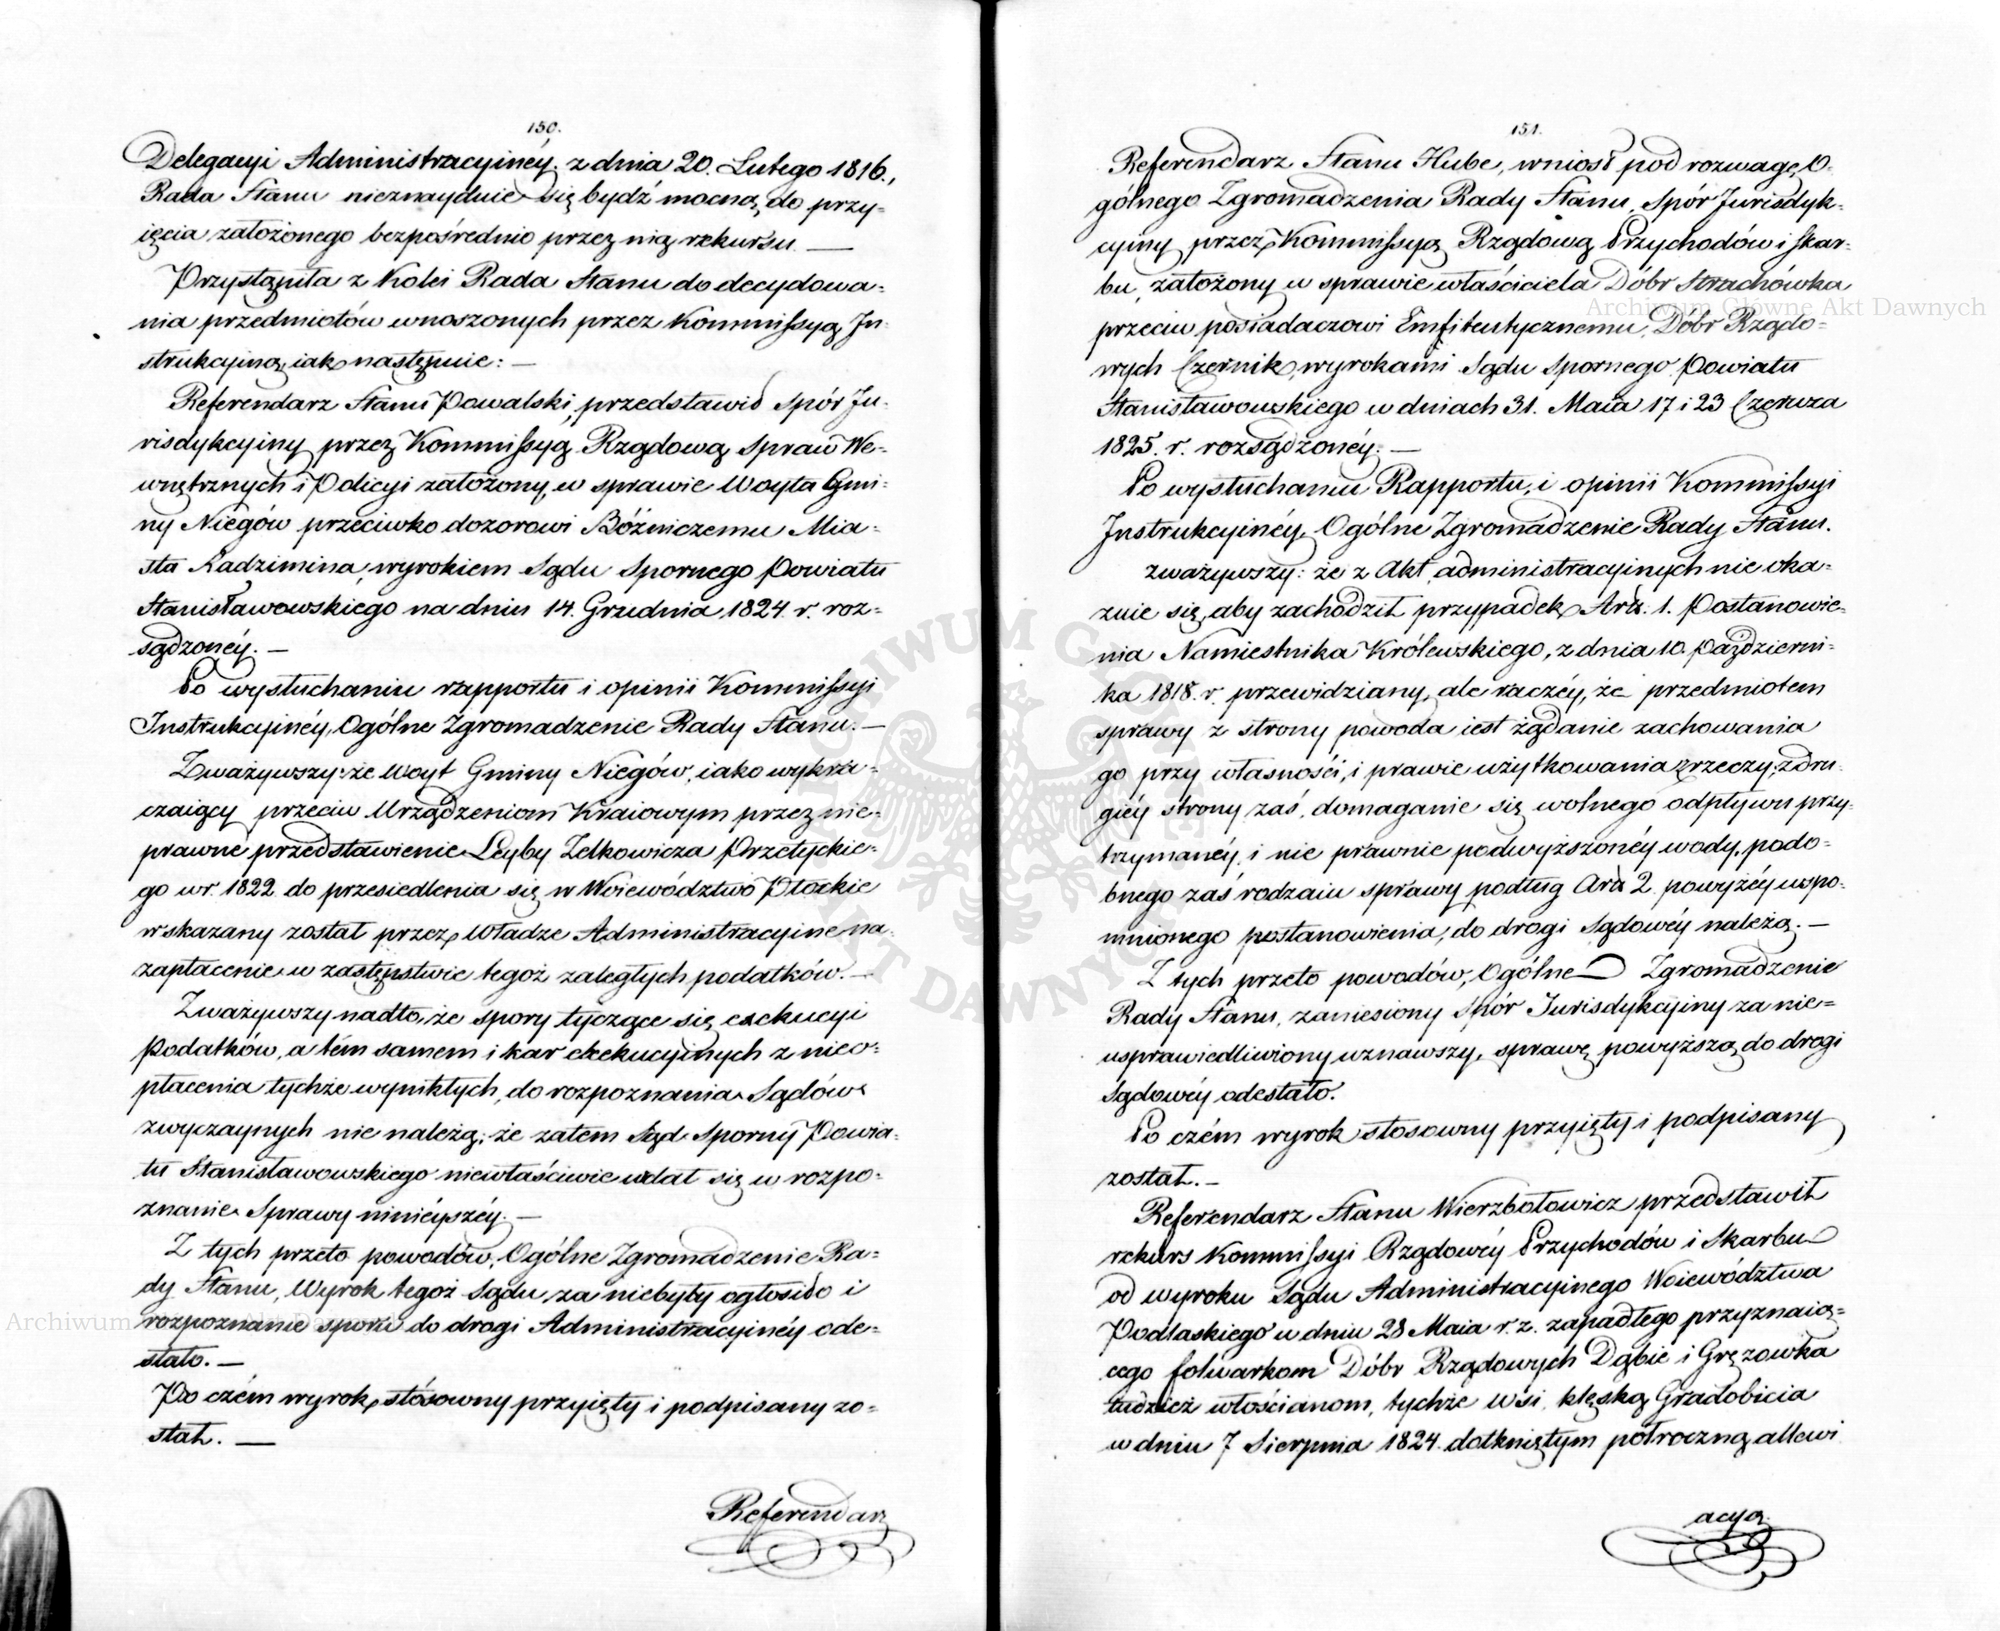 150.
Delegacyi Administracyinéy z dnia 20. Lutego 1816.,
Rada Stanu nieznayduie się bydź mocną do przy-
ięcia założonego bezpośrednio przez nią rekursu. —
Przystąpiła z Kolei Rada Stanu do decydowa-
nia przedmiotów wnoszonych przez Kommissyą In-
strukcyiną, iak następuie: —
Referendarz Stanu Powalski, przedstawił Spór Ju-
risdykcyiny przez Kommissyą Rządową Spraw We-
wnętrznych i Policyi założony, w sprawie Woyta Gmi-
ny Niegów przeciwko dozorowi Bóżniczemu Mia-
sta Radzimina, wyrokiem Sądu Spornego Powiatu
Stanisławowskiego na dniu 14. Grudnia 1824 r. roz-
sądzonéy. —
Po wysłuchaniu rapportu i opinii Kommissyi
Instrukcyinéy, Ogólne Zgromadzenie Rady Stanu. —
Zważywszy: że Woyt Gminy Niegów, iako wykra-
czaiący przeciw Urządzeniom Kraiowym przez nie-
prawne przedstawienie Leyby Zelkowicza Przetyckie-
go w r. 1822 do przesiedlenia się w Woiewództwo Płockie
wskazany został przez Władze Administracyine na
zapłacenie w zastępstwie tegoż zaległych podatków. —
Zważywszy nadto, że spory tyczące się exekucyi
Podatków, a tém samem i kar exekucyinych z nieo-
płacenia tychże wynikłych, do rozpoznania Sądów
zwyczaynych nie należą; że zatem Sąd Sporny Powia-
tu Stanisławowskiego niewłaściwie wdał się w rozpo-
znanie Sprawy ninieyszéy. —
Z tych przeto powodów, Ogólne Zgromadzenie Ra-
dy Stanu, Wyrok tegoż Sądu, za niebyły ogłosiło i
rozpoznanie sporu do drogi Administracyinéy ode-
słało. —
Po czém wyrok stósowny przyięty i podpisany zo-
stał. —
Referendarz
151.
Referendarz Stanu Hube, wniosł pod rozwagę O-
gólnego Zgromadzenia Rady Stanu, Spór Jurisdyk-
cyiny przez Kommissyą Rządową Przychodów i Skar-
bu, założony w sprawie właściciela Dóbr Strachówka
przeciw posiadaczowi Emfiteutycznemu, Dóbr Rządo-
wych Czernik, wyrokami Sądu Spornego Powiatu
Stanisławowskiego w dniach 31. Maia 17 i 23 Czerwca
1825. r. rozsądzonéy. —
Po wysłuchaniu Rapportu, i opinii Kommissyi
Instrukcyinéy, Ogólne Zgromadzenie Rady Stanu.
zważywszy: że z Akt administracyinych nie oka-
zuie się, aby zachodził przypadek, Art. 1. Postanowie-
nia Namiestnika Królewskiego, z dnia 10. Październi-
ka 1818. r. przewidziany, ale raczéy, że przedmiotem
sprawy z strony powoda iest żądanie zachowania
go przy własności, i prawie użytkowania z rzeczy; z dru-
giéy strony zaś, domaganie się wolnego odpływu przy-
trzymanéy, i nie prawnie podwyższonéy wody, podo-
bnego zaś rodzaiu sprawy podług Art 2. powyżéy wspo-
mnionego postanowienia, do drogi Sądowéy należą. —
Z tych przeto powodów, Ogólne Zgromadzenie
Rady Stanu, zaniesiony Spór Jurisdykcyiny za nie-
usprawiedliwiony uznawszy, sprawę powyższą do drogi
Sądowéy odesłało.
Po czém wyrok stosowny przyięty i podpisany
został. —
Referendarz Stanu Wierzbołowicz przedstawił
rekurs Kommissyi Rządowéy Przychodów i Skarbu
od wyroku Sądu Administracyinego Woiewództwa
Podlaskiego w dniu 28 Maia r. z. zapadłego przyznaią-
cego folwarkom Dóbr Rządowych Dąbie i Gręzowka
tudzież włościanom, tychże wsi, klęską Gradobicia
w dniu 7 Sierpnia 1824. dotkniętym półroczną allewi
acyą.
Archiwum Główne Akt Dawnych